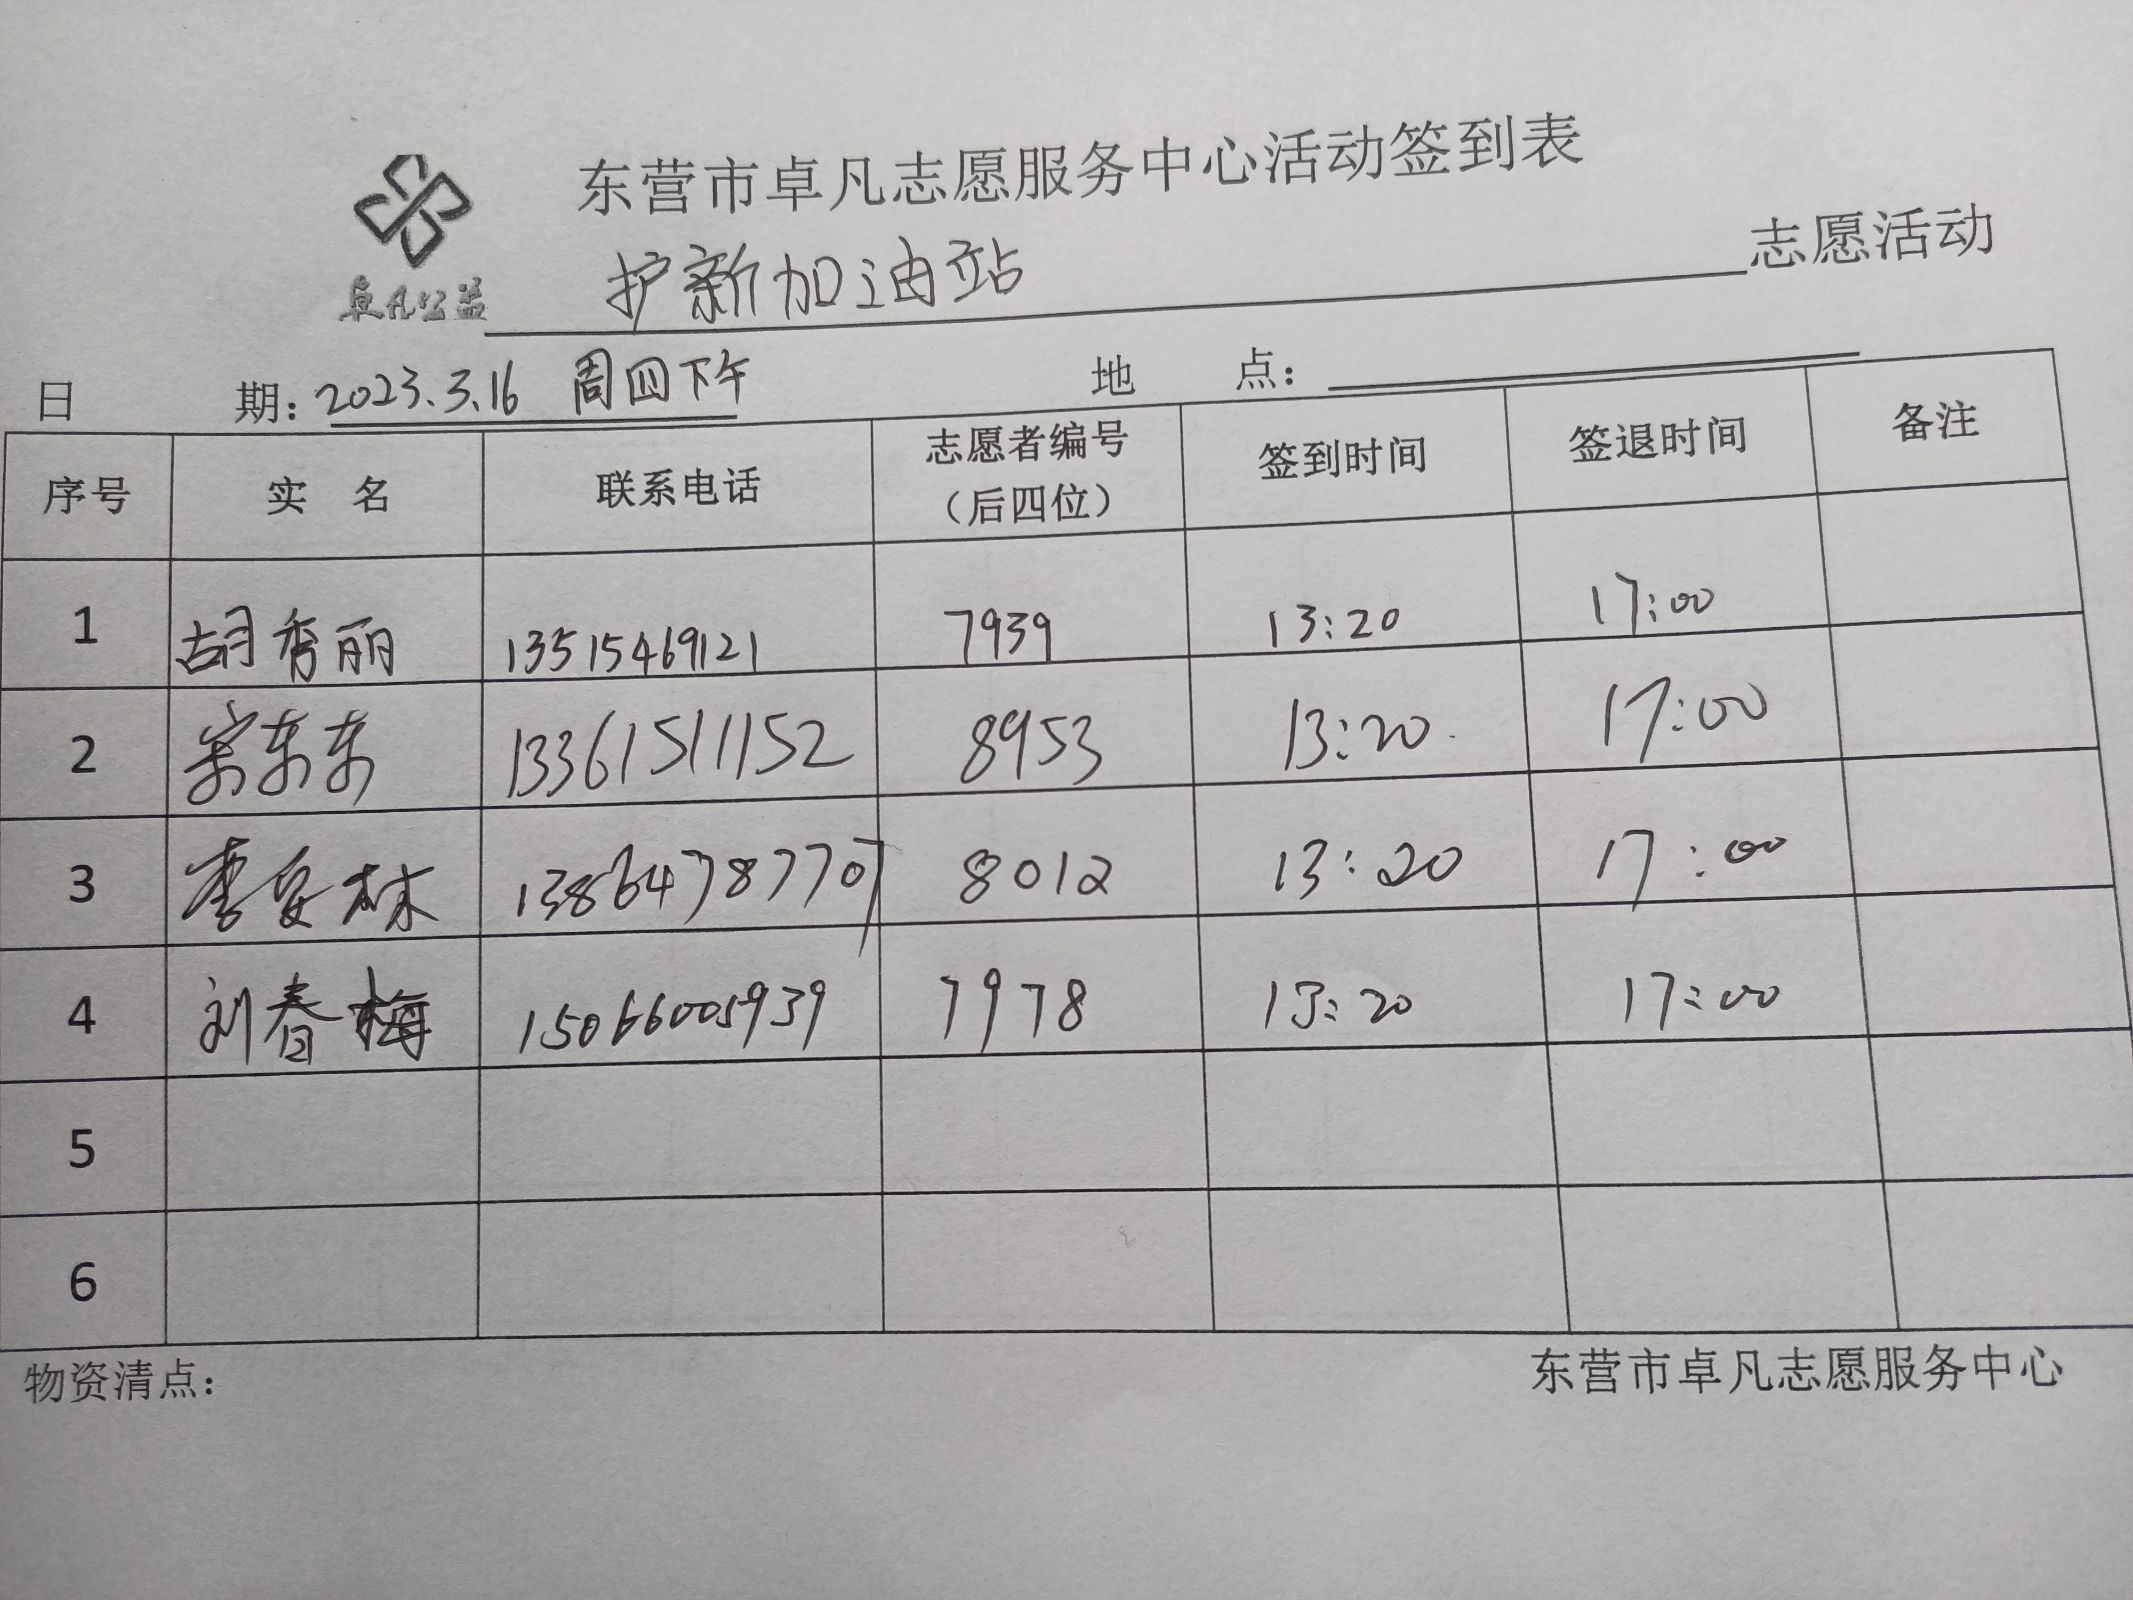 东营市卓凡志愿服务中心活动签到表
卓凡公益
护新加油站 志愿活动
日 期: 2023.3.16 周四下午 地 点:
序号 实 名 联系电话 志愿者编号（后四位） 签到时间 签退时间 备注
1 胡秀丽 13515469121 7939 13:20 17:00
2 宋东东 13361511152 8953 13:20 17:00
3 李安林 13864787707 8012 13:20 17:00
4 刘春梅 15066005939 7978 13:20 17:00
5
6
物资清点: 东营市卓凡志愿服务中心